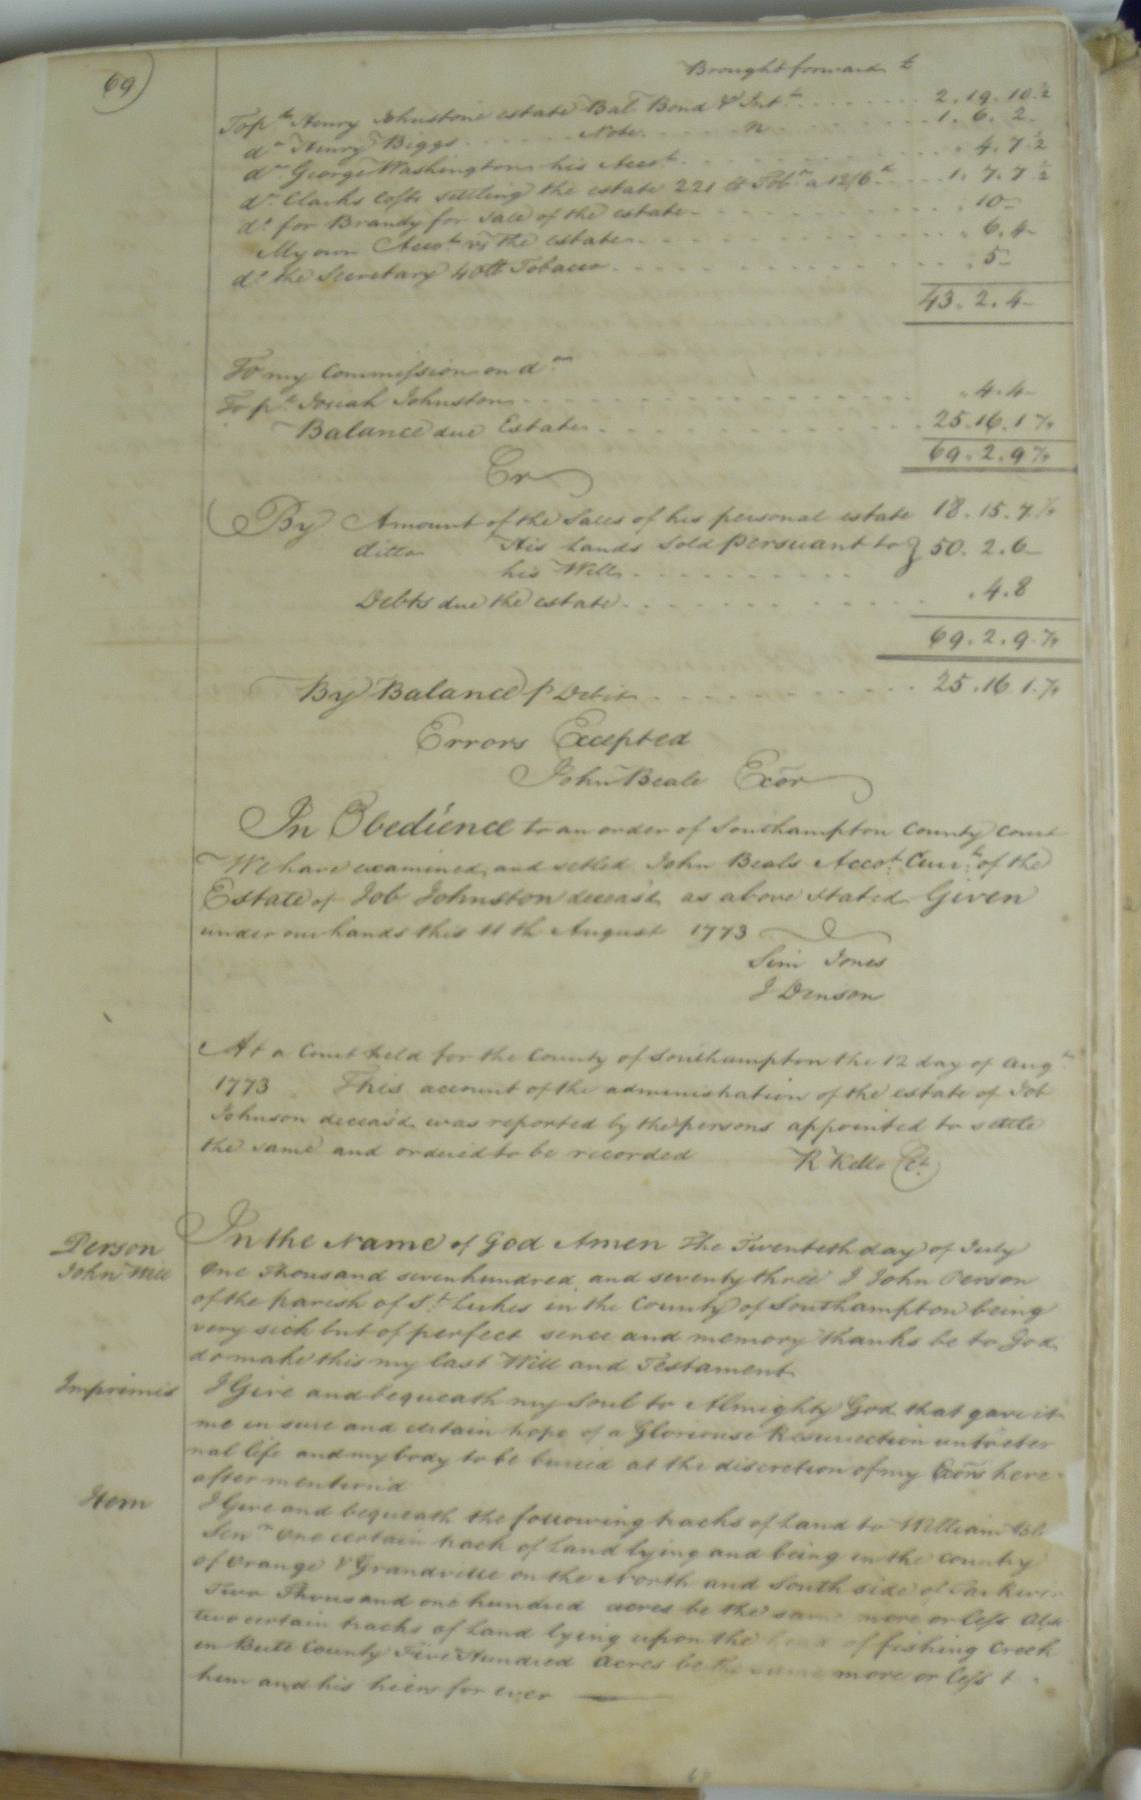 69
Brought forward £
To pd. Henry Johnstons estate Bal Bond & Intt. 2.19.10 ½
do. Henry Biggs Note 1.6.2
do. George Washington his Acct. .4.7 ½
do. Clarks Costs settling the estate 221 lb Tobo. a 12/6 1.7.7 ½
do. for Brandy for sale of the estate .10-
My own Accot. vs the estate .6.4-
do. the Secretary 40lb Tobacco .5-
43.2.4-
To my Commission on do.
To pd. Josiah Johnston .4.4-
Balance due Estate 25.16.1
69.2.9
Cr
By Amount of the Sales of his personal estate 18.15.7
ditto His lands sold persuant to } 50.2.6-
his Will
Debts due the estate .4.8
69.2.9
By Balance pr Debit 25.16 1.
Errors Excepted
John Beale Exōr
In Obedience to an order of Southampton County Court
We have examined and setled John Beals Accot. Curt. of the
Estate of Job Johnston deceas'd as above stated Given
under our hands this 11th August 1773
Sim Jones
J Denson
At a Court held for the County of Southampton the 12 day of Augt.
1773 This account of the administration of the estate of Job
Johnson deceas'd was reported by the persons appointed to settle
the same and ordered to be recorded R Kello Ct.
Person
John Will
In the Name of God Amen The Twentieth day of July
One Thousand seven hundred and seventy three I John Person
of the parish of St. Lukes in the County of Southampton being
very sick but of perfect sence and memory thanks be to God
do make this my last Will and Testament
Imprimis I Give and bequeath my Soul to Almighty God that gave it
me in sure and certain hope of a Gloriouse Resurrection unto eter
nal life and my body to be buried at the discretion of my Exōrs here
after mention'd
Item I Give and bequeath the following tracks of Land to William
Senr. One certain track of Land lying and being in the country
of Orange & Grandville on the North and South side of
Two Thousand one hundred acres be the same more or less Also
two certain tracks of Land lying upon the head of fishing Creek
in Bute County Five Hundred acres be the same more or less t
him and his heirs for ever